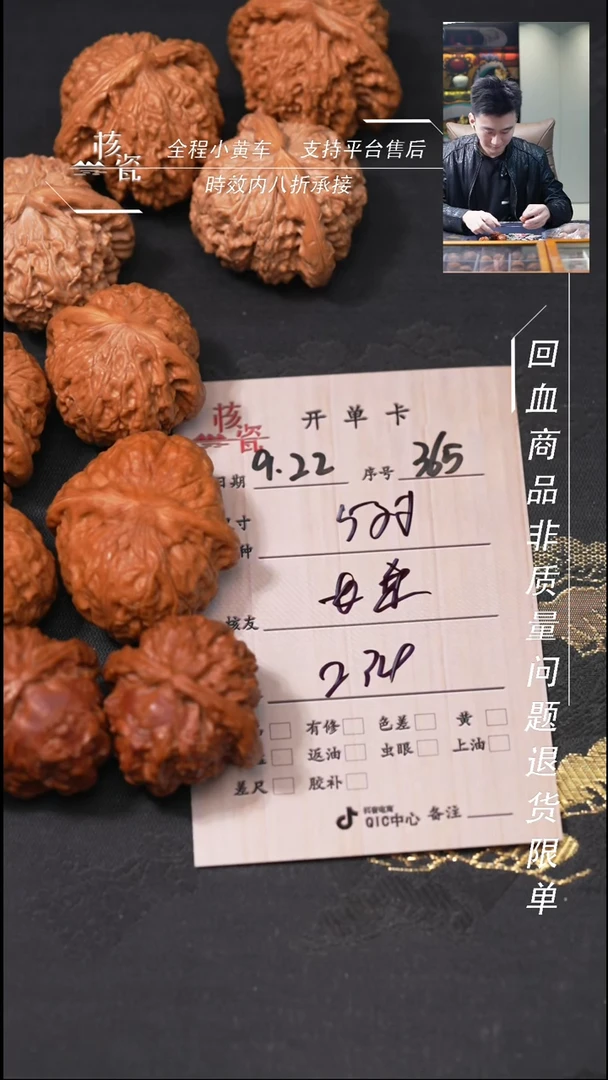 核瓷
全程小黄车 支持平台售后
時效内八折承接
回血商品非质量问题退货限单
核瓷
开单卡
日期 9.22 序号 365
寸 5对
种
核友
234
有修 色差 黄
返油 虫眼 上油
差尺 胶补
抖音电商
QIC中心 备注